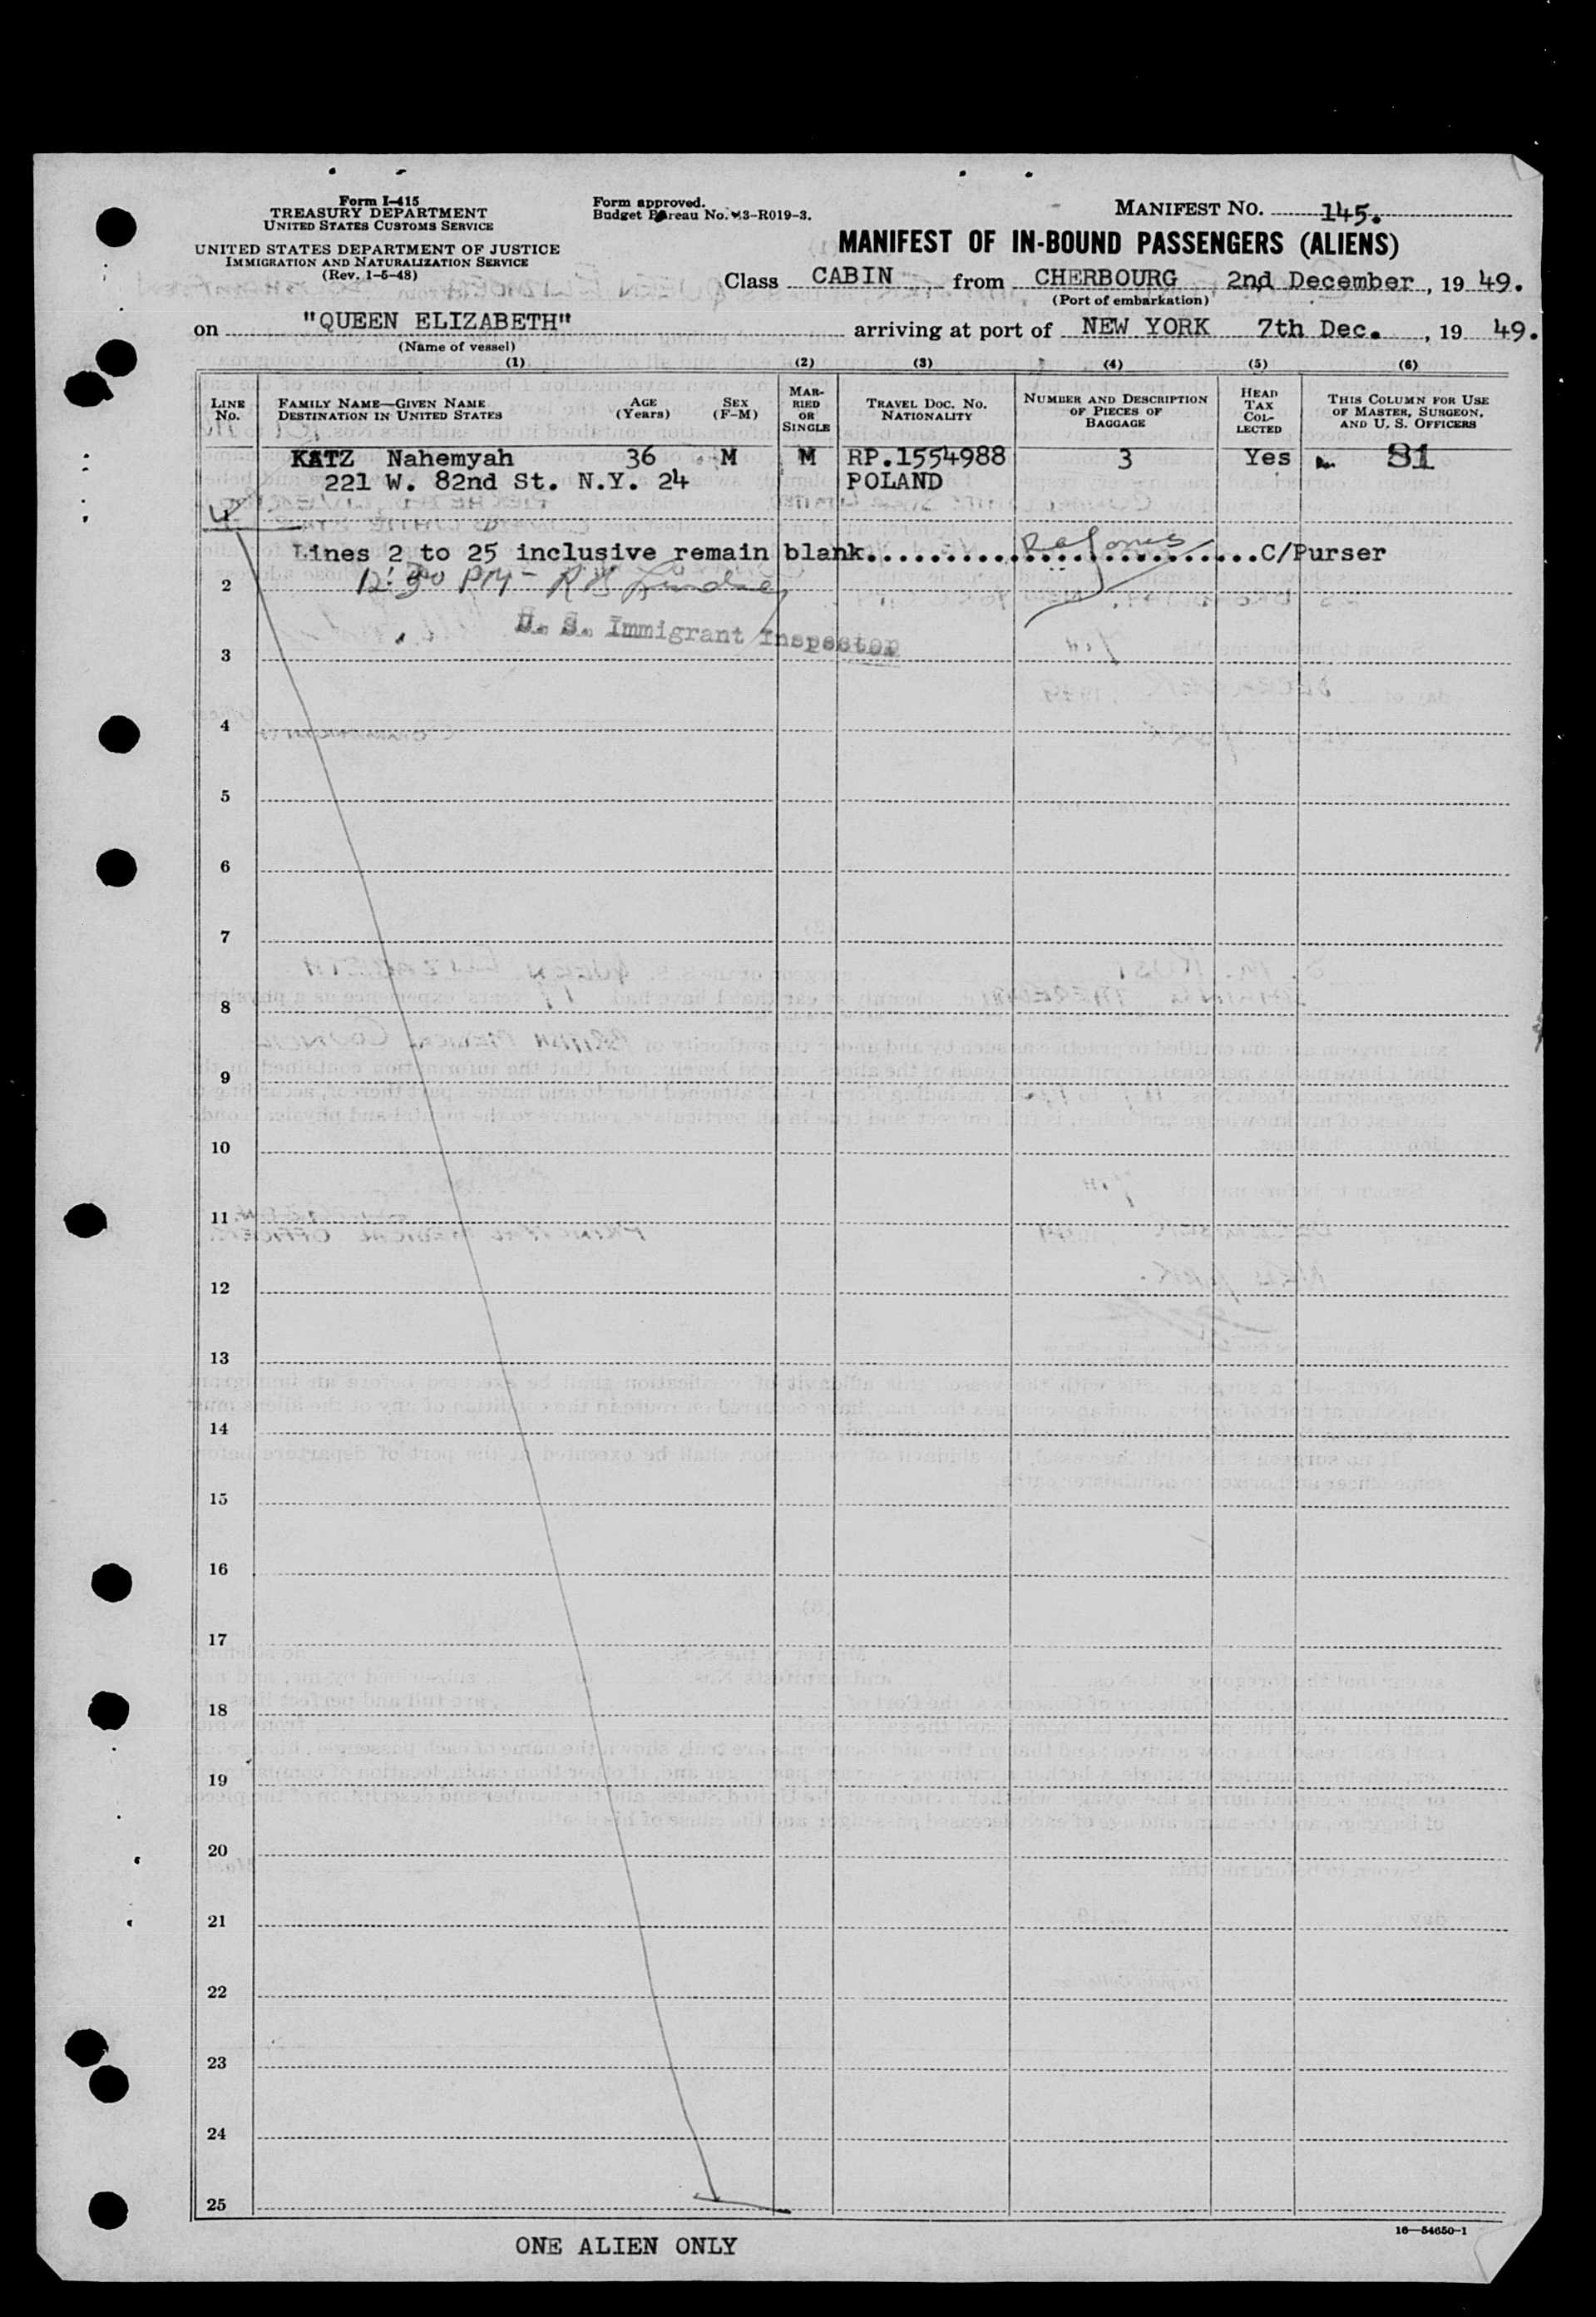 Form I-415
TREASURY DEPARTMENT
UNITED STATES CUSTOMS SERVICE
UNITED STATES DEPARTMENT OF JUSTICE
IMMIGRATION AND NATURALIZATION SERVICE
(Rev. 1-5-48)
Form approved.
Budget Bureau No. 43-R019-3.
MANIFEST NO. 145.
MANIFEST OF IN-BOUND PASSENGERS (ALIENS)
Class CABIN from CHERBOURG 2nd December, 19 49.
(Port of embarkation)
on "QUEEN ELIZABETH" arriving at port of NEW YORK 7th Dec., 19 49.
(Name of vessel)
(1) (2) (3) (4) (5) (6)
LINE No. FAMILY NAME—GIVEN NAME DESTINATION IN UNITED STATES AGE (Years) SEX (F-M) MARRIED OR SINGLE TRAVEL DOC. NO. NATIONALITY NUMBER AND DESCRIPTION OF PIECES OF BAGGAGE HEAD TAX COLLECTED THIS COLUMN FOR USE OF MASTER, SURGEON, AND U. S. OFFICERS
KATZ Nahemyah 36 M M RP.1554988 3 Yes 81
221 W. 82nd St. N.Y. 24 POLAND
1
Lines 2 to 25 inclusive remain blank. C/Purser
2 12:30 PM-
U. S. Immigrant Inspector
3
4
5
6
7
8
9
10
11
12
13
14
15
16
17
18
19
20
21
22
23
24
25
16—54650-1
ONE ALIEN ONLY